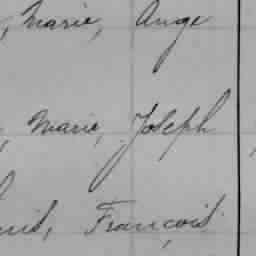 , Marie, Ange
, Marie, Joseph
François